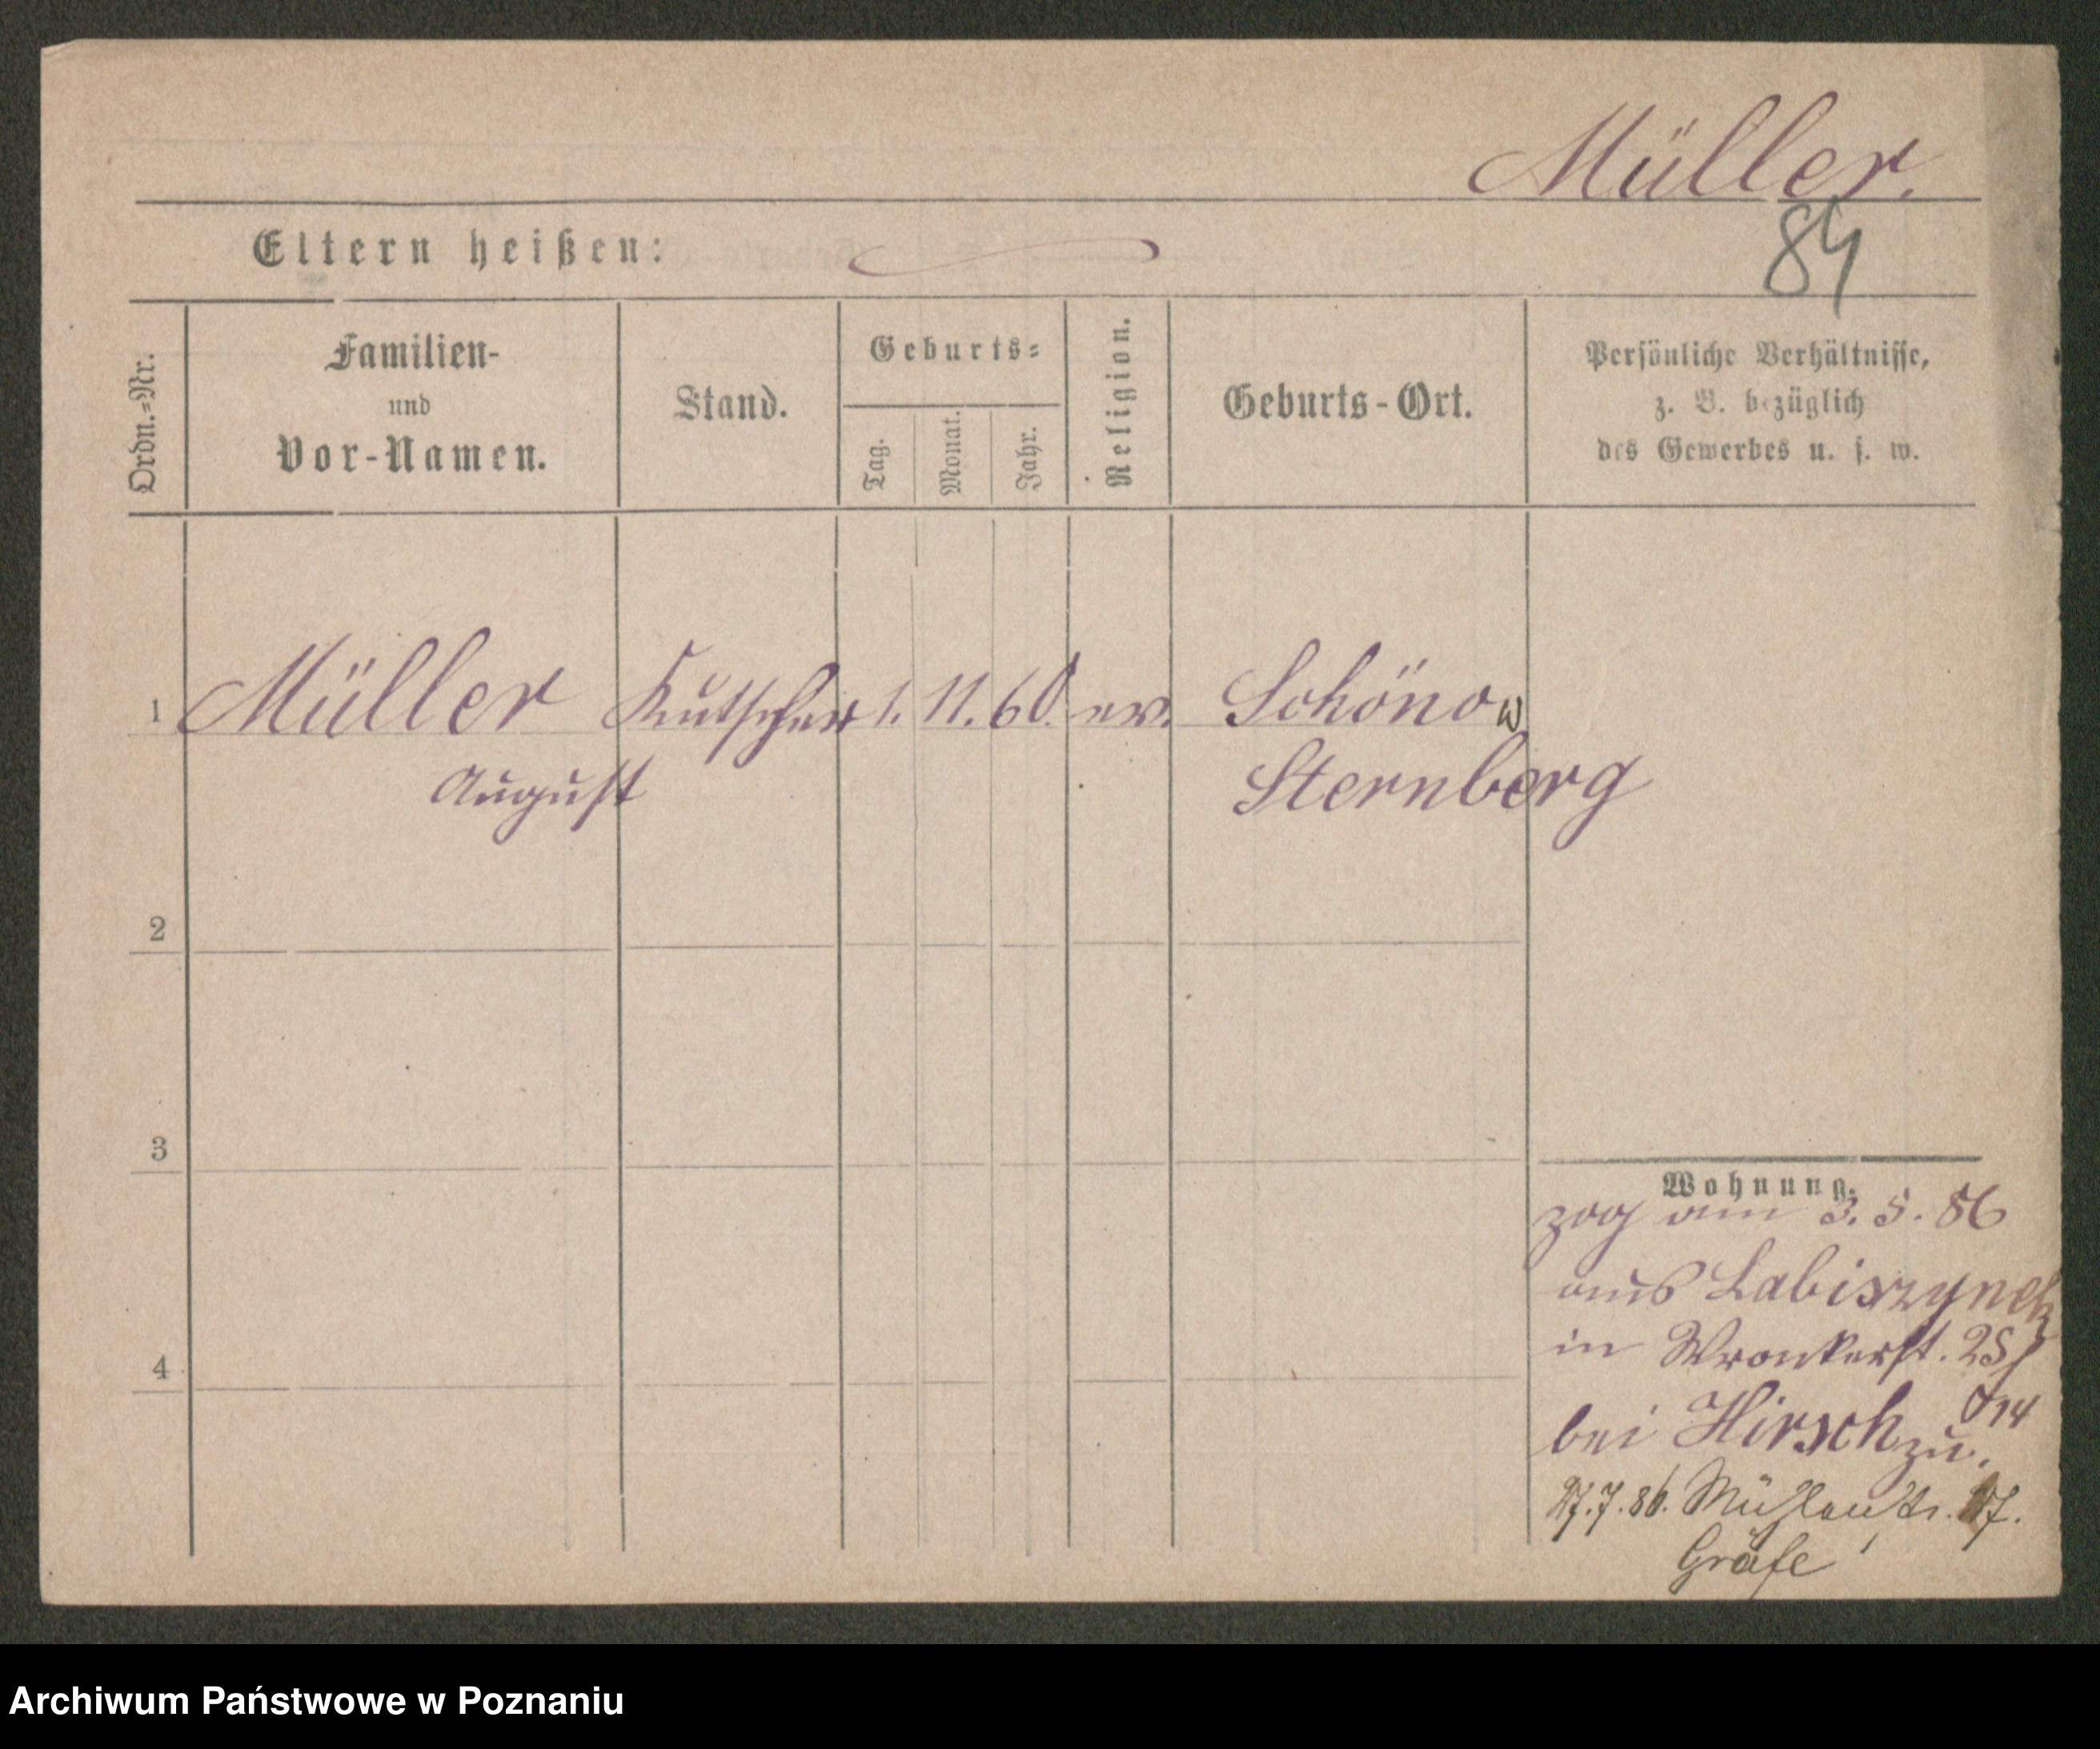 Müller.
84
Eltern heißen:
Ordn.-Nr.
Familien-
und
Vor-Namen.
Stand.
Geburts-
Tag.
Monat.
Jahr.
Religion.
Geburts-Ort.
Persönliche Verhältnisse,
z. B. bezüglich
des Gewerbes u. s. w.
1 Müller Kutscher 1. 11. 60. ev. Schönow
August Sternberg
2
3
4
Wohnung.
zog am 3. 5. 86
aus Labiszynek
in Wronkerst. 25
bei Hirsch zu.
27.7.86. Mühlenstr.
Gräfe
Archiwum Państwowe w Poznaniu